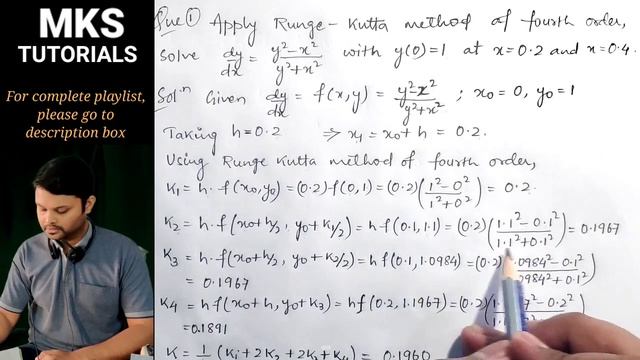 MKS
TUTORIALS
For complete playlist,
please go to
description box
Que ① Apply Runge-Kutta method of fourth order,
solve dy/dx = (y²-x²)/(y²+x²) with y(0)=1 at x=0.2 and x=0.4.
Solⁿ Given dy/dx = f(x,y) = (y²-x²)/(y²+x²) ; x₀=0, y₀=1
Taking h=0.2 ⇒ x₁=x₀+h = 0.2.
Using Runge Kutta method of fourth order,
K₁ = h·f(x₀,y₀) = (0.2) f(0,1) = (0.2)((1²-0²)/(1²+0²)) = 0.2
K₂ = h·f(x₀+h/2, y₀+K₁/2) = h f(0.1,1.1) = (0.2)((1.1²-0.1²)/(1.1²+0.1²)) = 0.1967
K₃ = h·f(x₀+h/2, y₀+K₂/2) = h f(0.1,1.0984) = (0.2)( .0984²-0.1²)/( .0984²+0.1²)
= 0.1967
K₄ = h f(x₀+h, y₀+K₃) = hf(0.2,1.1967) = (0.2)
=0.1891
K = 1/6 (K₁+2K₂+2K₃+K₄) = 0.1960